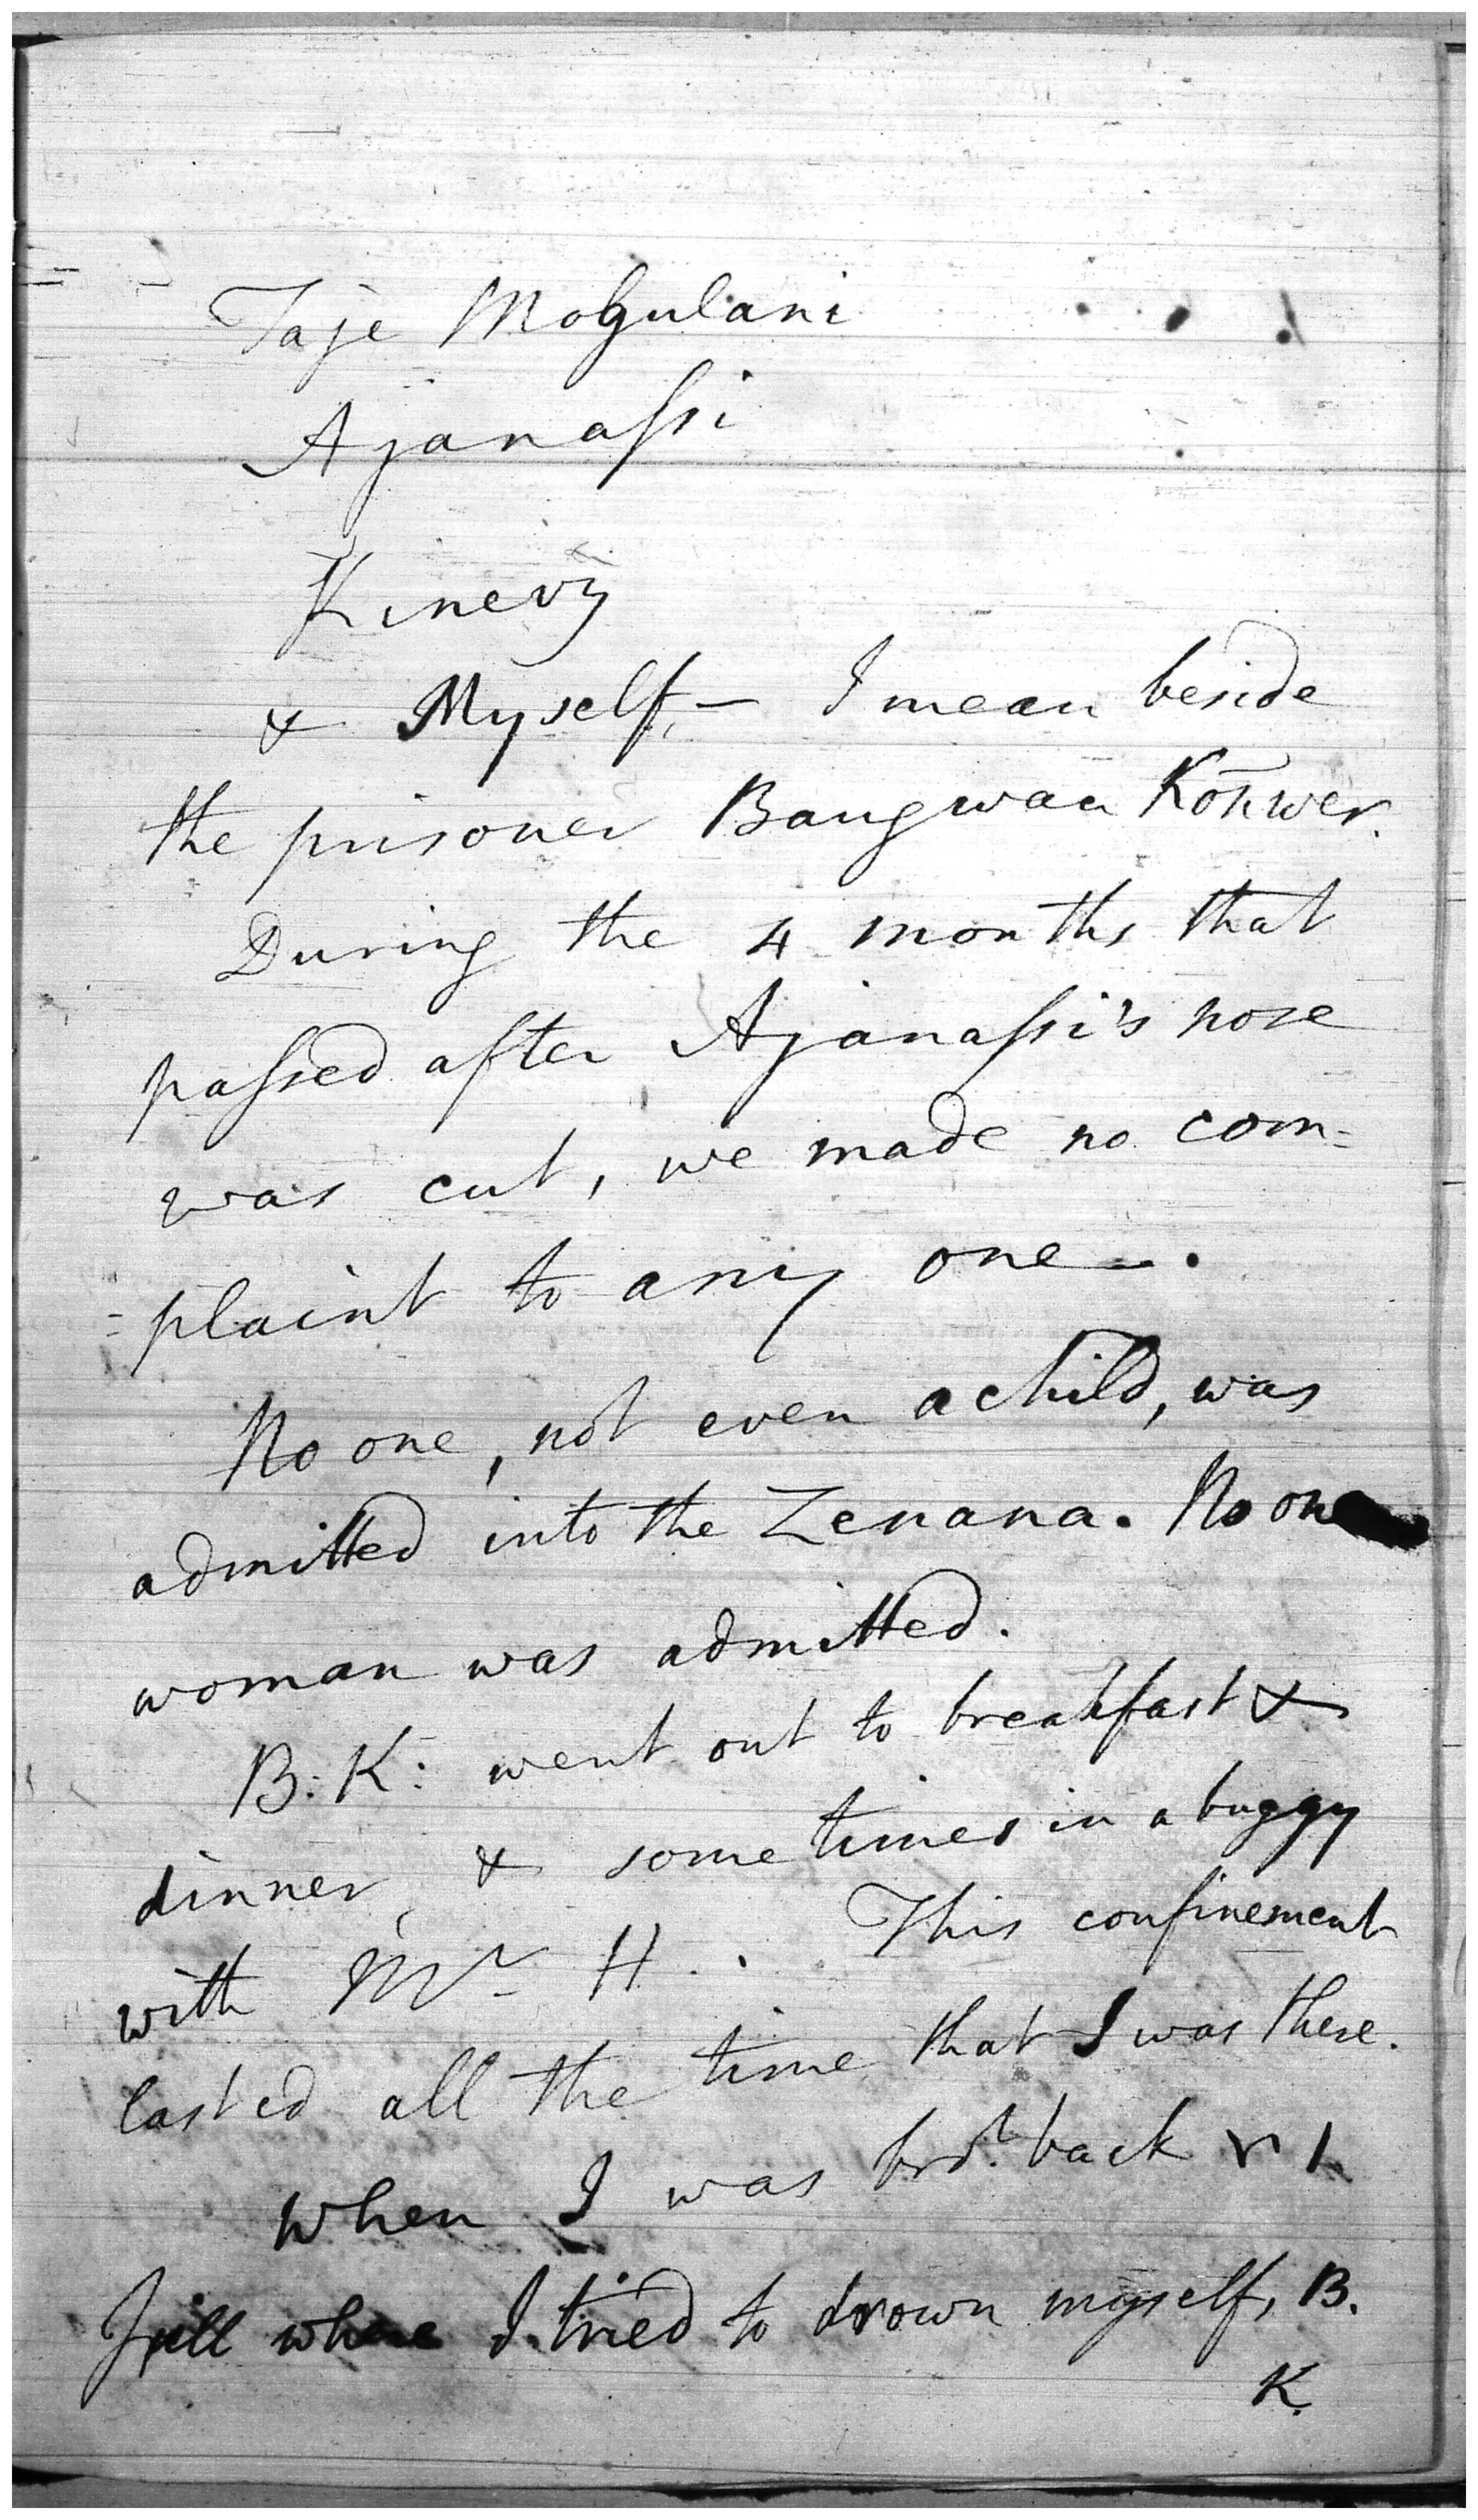 Taje Mogulani
Ajanassi
Kinery
& Myself, – I mean beside
the prisoner Baugwan Konwer.
During the 4 months that
passed after Ajanassi's nose
was cut, we made no com=
=plaint to any one –.
No one, not even a child, was
admitted into the Zenana. No one
woman was admitted.
B: K: went out to breakfast &
dinner, & sometimes in a buggy
with Mr H. . This confinement
lasted all the time that I was there.
When I was brot. back
where I tried to drown myself, B.
K.